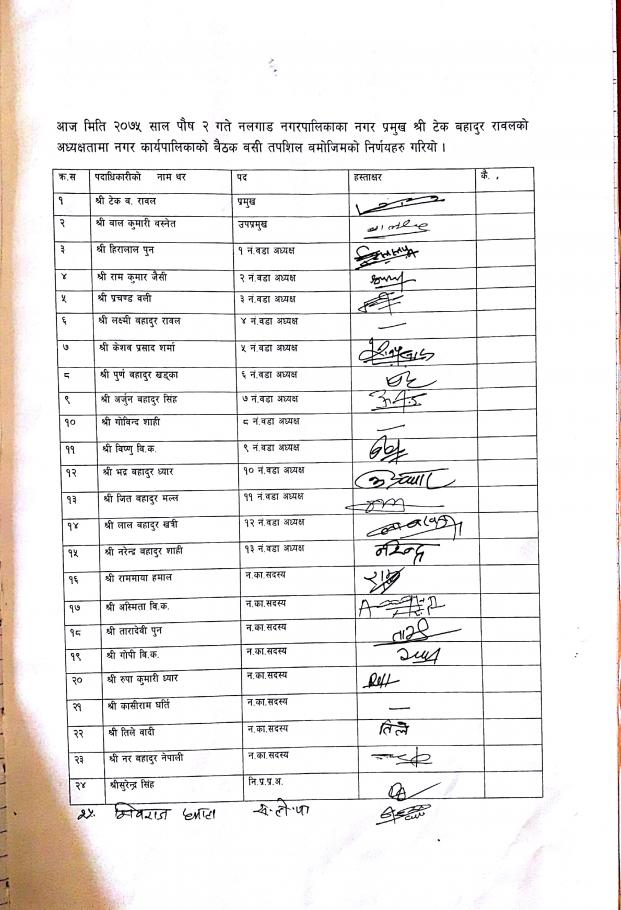 आज मिति २०७५ साल पौष २ गते नलगाड नगरपालिकाका नगर प्रमुख श्री टेक बहादुर रावलको
अध्यक्षतामा नगर कार्यपालिकाको बैठक बसी तपशिल बमोजिमको निर्णयहरु गरियो ।
क्र.स पदाधिकारीको नाम थर पद हस्ताक्षर कै.
१ श्री टेक ब. रावल प्रमुख
२ श्री बाल कुमारी बस्नेत उपप्रमुख
३ श्री हिरालाल पुन १ नं.वडा अध्यक्ष
४ श्री राम कुमार जैसी २ नं.वडा अध्यक्ष
५ श्री प्रचण्ड वली ३ नं.वडा अध्यक्ष
६ श्री लक्ष्मी बहादुर रावल ४ नं.वडा अध्यक्ष
७ श्री केशव प्रसाद शर्मा ५ नं.वडा अध्यक्ष
८ श्री पुर्ण बहादुर खड्का ६ नं.वडा अध्यक्ष
९ श्री अर्जुन बहादुर सिंह ७ नं.वडा अध्यक्ष
१० श्री गोविन्द शाही ८ नं.वडा अध्यक्ष
११ श्री विष्णु वि.क. ९ नं.वडा अध्यक्ष
१२ श्री भद्र बहादुर ध्यार १० नं.वडा अध्यक्ष
१३ श्री जित बहादुर मल्ल ११ नं.वडा अध्यक्ष
१४ श्री लाल बहादुर खत्री १२ नं.वडा अध्यक्ष
१५ श्री नरेन्द्र बहादुर शाही १३ नं.वडा अध्यक्ष नरेन्द्र
१६ श्री राममाया हमाल न.का.सदस्य
१७ श्री अस्मिता वि.क. न.का.सदस्य
१८ श्री तारादेवी पुन न.का.सदस्य
१९ श्री गोपी वि.क. न.का.सदस्य
२० श्री रुपा कुमारी ध्यार न.का.सदस्य
२१ श्री कासीराम घर्ति न.का.सदस्य
२२ श्री तिले वादी न.का.सदस्य तिले
२३ श्री नर बहादुर नेपाली न.का.सदस्य
२४ श्रीसुरेन्द्र सिंह नि.प्र.प्र.अ.
२५.